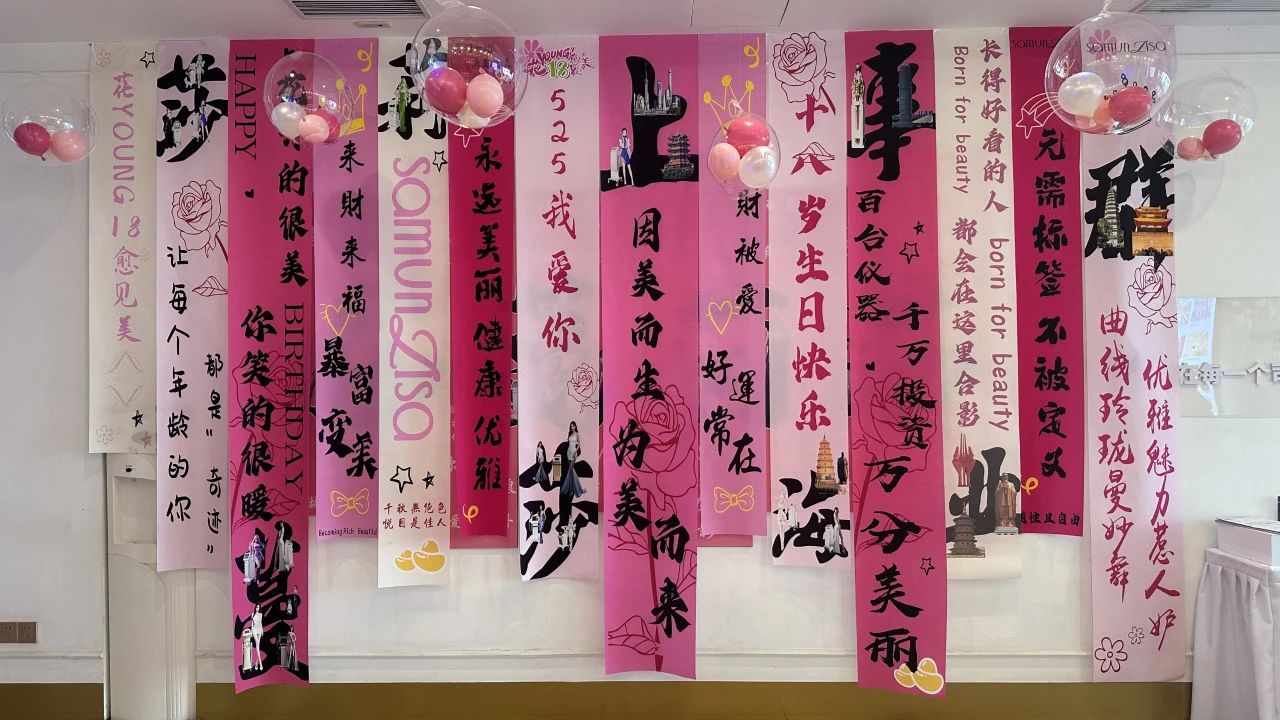 花YOUNG 18愈见美
莎
让每个年龄的你
都是"奇迹"
HAPPY BIRTHDAY
你的很美 你笑的很暖
来财来福
暴富
变美
Becoming Rich Beautiful
莉
samunLisa
千秋無绝色
悦目是佳人
永远美丽 健康优雅
YOUNG
18
525我爱你
莎
上
因美而生为美而来
财被爱
好運
常在
十八岁生日快乐
海
事
百台仪器
千万投资万分美丽
Born for beauty born for beauty
长得好看的人 都会在这里合影
业
无需标签 不被定义
且自由
samunLisa
群
曲线玲珑曼妙舞
优雅魅力惹人妒
在每一个